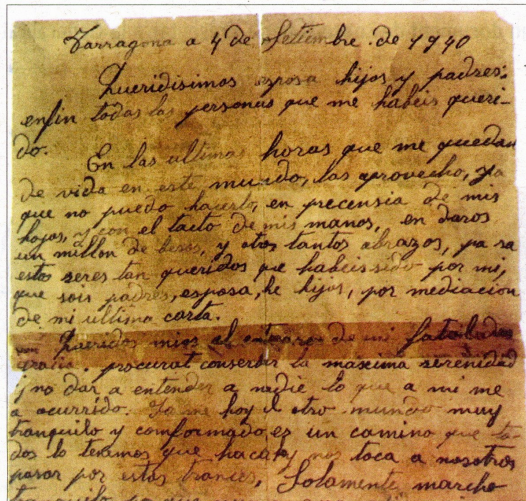 Tarragona a 4 de Setiembre de 1940
Queridisimos esposa hijos y padres:
enfin todas las personas que me habeis queri-
do.
En las ultimas horas que me quedan
de vida en este mundo, las aprovecho, ya
que no puedo hacerlo, en precensia de mis
hojos, y con el tacto de mis manos, en daros
un millon de besos, y otros tantos abrazos, pa sa
estos seres tan queridos que habeis sido por mi,
que sois padres, esposa, he hijos, por mediacion
de mi ultima carta.
Queridos mios al enteraros de mi fatal
procurat conserbar la maxima serenidad
i no dar a entender a nadie lo que a mi me
a ocurrido. me hoy al otro mundo muy
tranquilo y comformado, es un camino que to-
dos lo tenemos que hacer, y nos toca a nosotros
pasar por estos trances, Solamente marcho